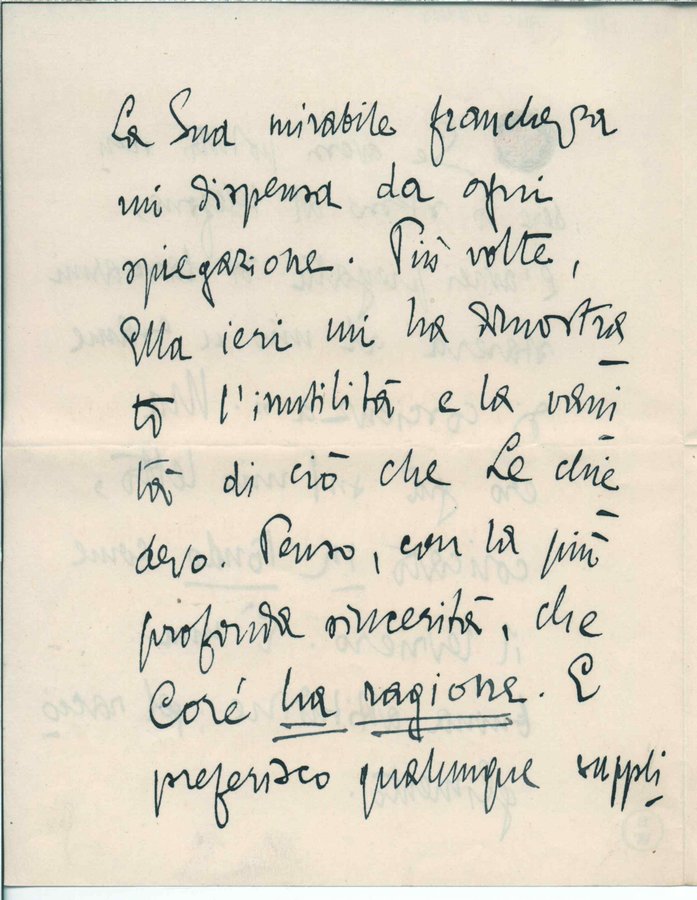 La Sua mirabile franchezza
mi dispensa da ogni
spiegazione. Più volte,
Ella ieri mi ha dimostra
to l'inutilità e la vani
tà di ciò che Le chie
devo. Penso, con la più
profonda sincerità, che
Coré ha ragione. E
preferisco qualunque suppli